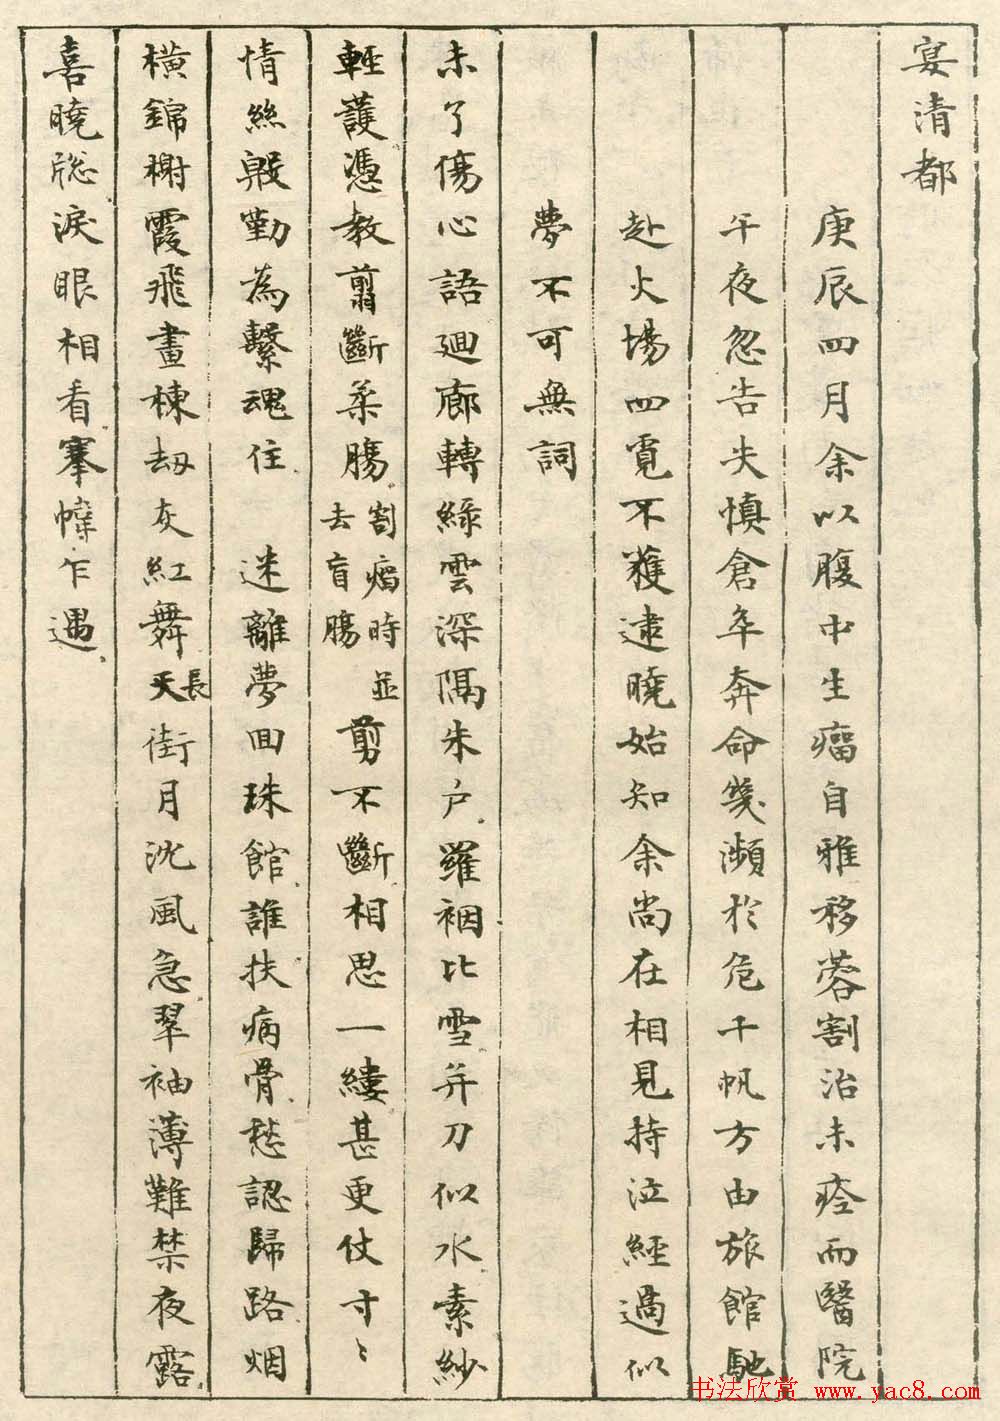 宴清都
庚辰四月余以腹中生瘤自雅移蓉割治未痊而醫院
午夜忽告失慎倉卒奔命幾瀕於危千帆方由旅館馳
赴火場四覓不獲逮曉始知余尚在相見持泣經過似
夢不可無詞
未了傷心語迴廊轉綠雲深隔朱户羅裀比雪并刀似水素紗
輕護憑教翦斷柔腸割瘤時並去盲腸剪不斷相思一縷甚更仗寸〻
情絲殷勤為繫魂住 迷離夢回珠館誰扶病骨愁認歸路烟
橫錦榭霞飛畫棟劫灰紅舞長天街月沈風急翠袖薄難禁夜露
喜曉窗淚眼相看搴幃乍遇
书法欣赏 www.yac8.com